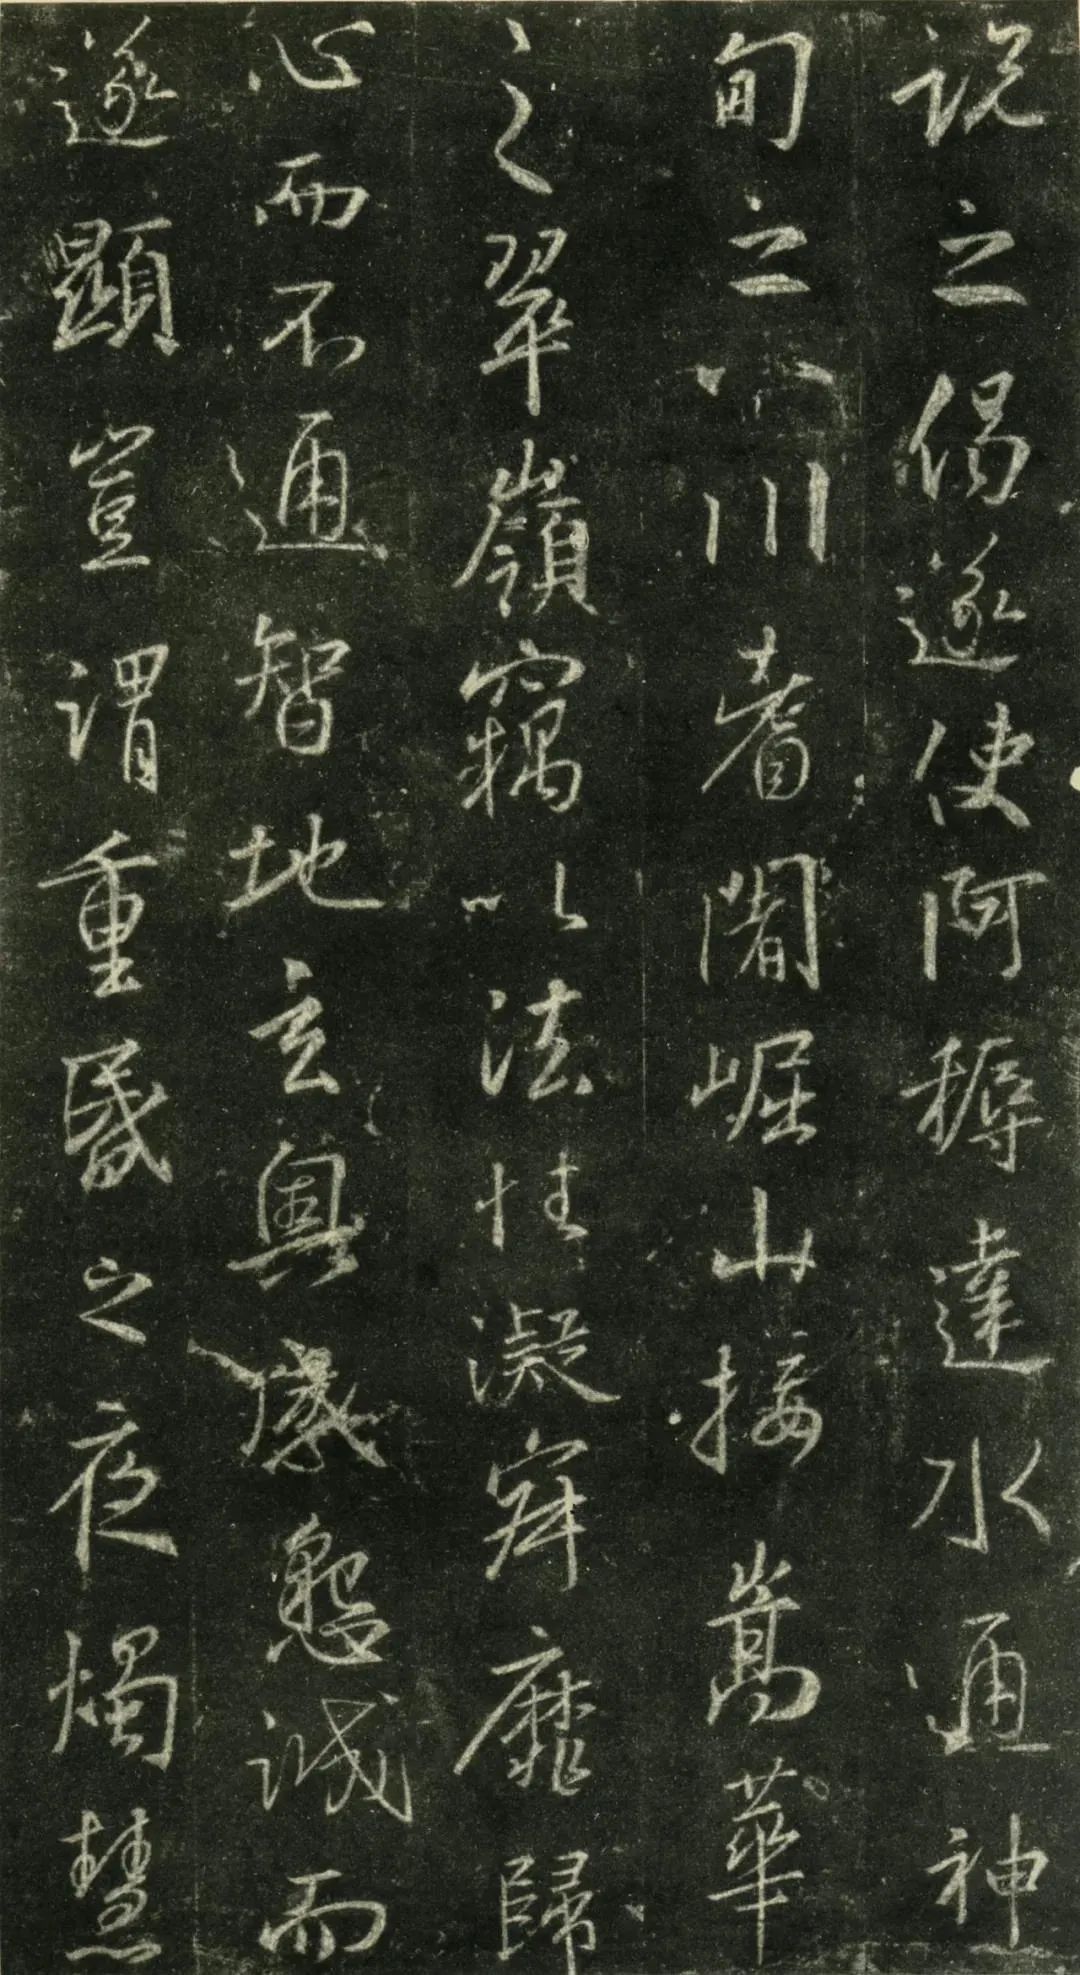 説之偈遂使阿耨達水通神
甸之八川耆闍崛山接嵩華
之翠嶺竊以法性凝寂靡歸
心而不通智地玄奧感懇誠而
遂顯豈謂重昏之夜燭慧